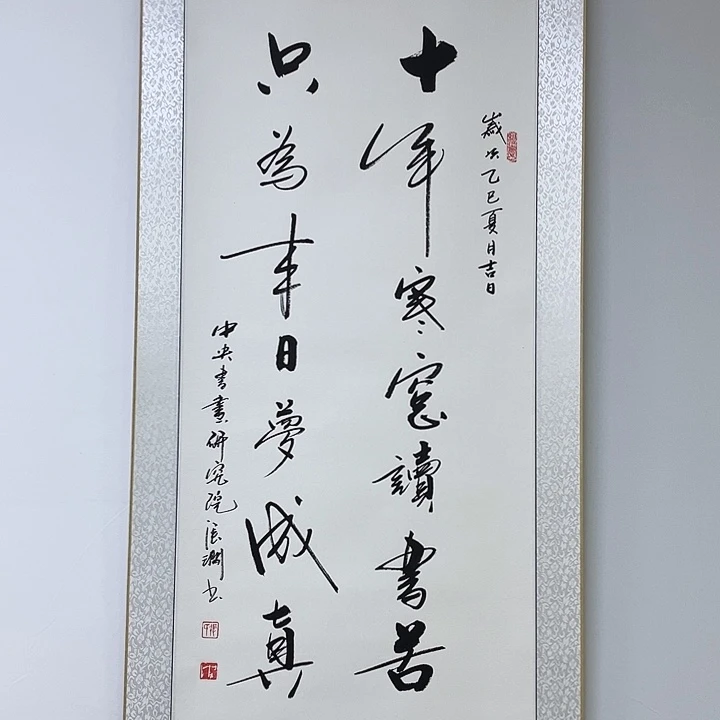 歲次乙巳夏月吉日
十年寒窓讀書苦
只為来日夢成真
中央書畫研究院張澗书